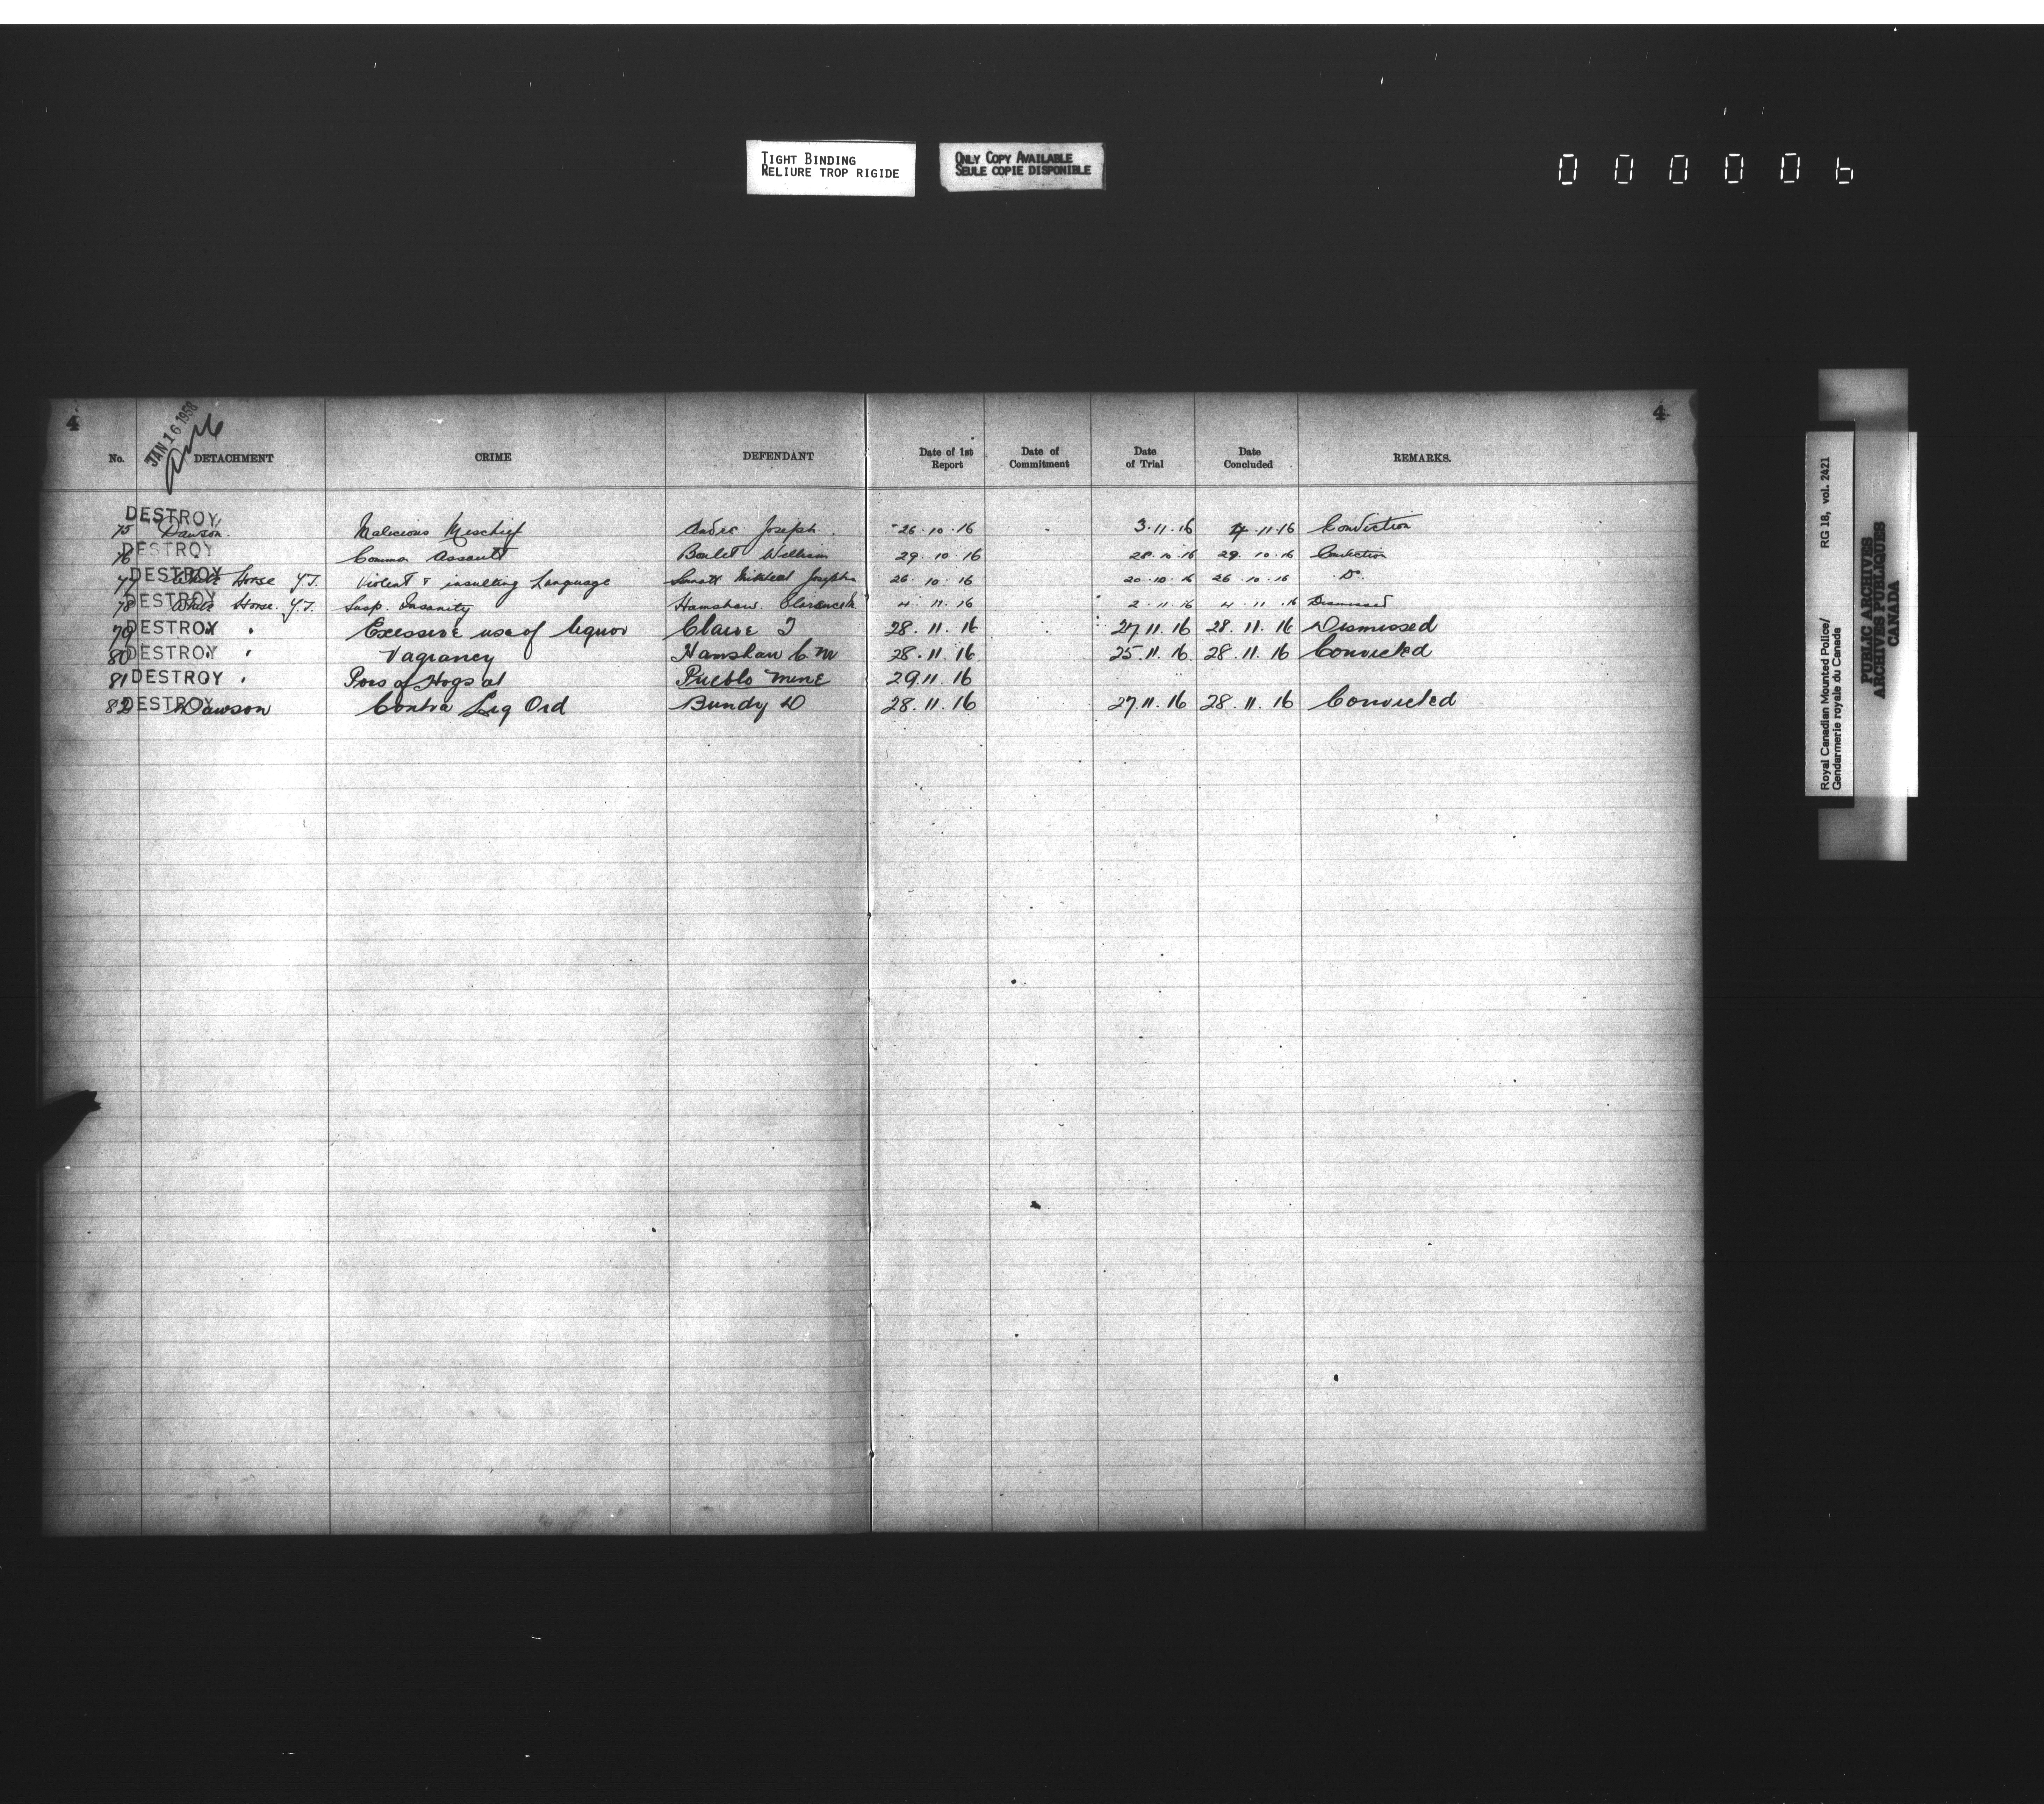 TIGHT BINDING
RELIURE TROP RIGIDE
ONLY COPY AVAILABLE
SEULE COPIE DISPONIBLE
000006
4 4
JAN 16 1958
No. DETACHMENT CRIME DEFENDANT Date of 1st Report Date of Commitment Date of Trial Date Concluded REMARKS.
DESTROY
75 Dawson. Malicious Mischief Joseph. 26.10.16 3.11.16 4.11.16 Conviction
DESTROY
76 Common Assault Boulet William 29.10.16 28.10.16 29.10.16 Conviction
DESTROY
77 White Horse Y.T. Violent & insulting Language Josephine 26.10.16 20.10.16 26.10.16 Do
DESTROY
78 White Horse. Y.T. Susp. Insanity Hamshaw. 4.11.16 2.11.16 4.11.16 Dismissed
79 DESTROY " " Excessive use of liquor Claire J 28.11.16 27.11.16 28.11.16 Dismissed
80 DESTROY " " Vagrancy Hamshaw C.M 28.11.16 25.11.16 28.11.16 Convicted
81 DESTROY " Pois of Hogs at Pueblo Mine 29.11.16
DESTROY
82 Dawson Contra Liq Ord Bundy D 28.11.16 27.11.16 28.11.16 Convicted
Royal Canadian Mounted Police/ RG 18, vol. 2421
Gendarmerie royale du Canada
PUBLIC ARCHIVES
ARCHIVES PUBLIQUES
CANADA